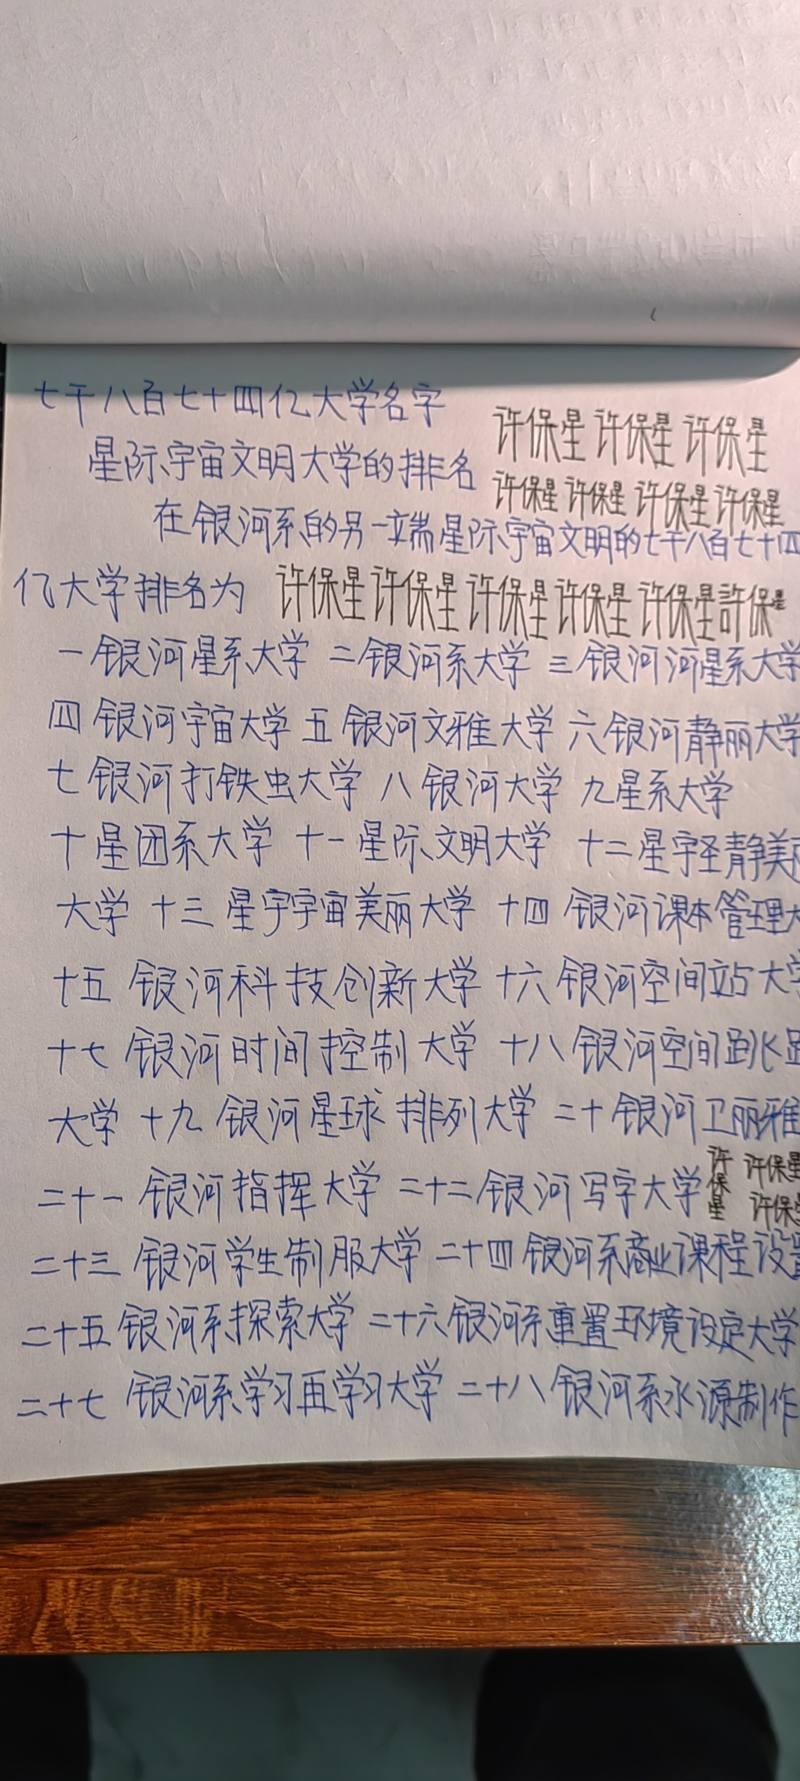 七千八百七十四亿大学名字
许保星 许保星 许保星
星际宇宙文明大学的排名
许保星 许保星 许保星 许保星
在银河系的另一端星际宇宙文明的七千八百七十四
亿大学排名为
许保星 许保星 许保星 许保星 许保星 許保星
一银河星系大学 二银河系大学 三银河河星系大学
四银河宇宙大学 五银河文雅大学 六银河静丽大学
七银河打铁虫大学 八银河大学 九星系大学
十星团系大学 十一星际文明大学 十二星宇圣静美丽
大学 十三星宇宇宙美丽大学 十四银河课本管理大
十五银河科技创新大学 十六银河空间站大学
十七银河时间控制大学 十八银河空间跳
大学 十九银河星球排列大学 二十银河卫丽雅
二十一银河指挥大学 二十二银河写字大学
许保星
许保星
许保星
二十三银河学生制服大学 二十四银河系商业课程设置
二十五银河系探索大学 二十六银河系重置环境设定大学
二十七银河系学习再学习大学 二十八银河系水源制作